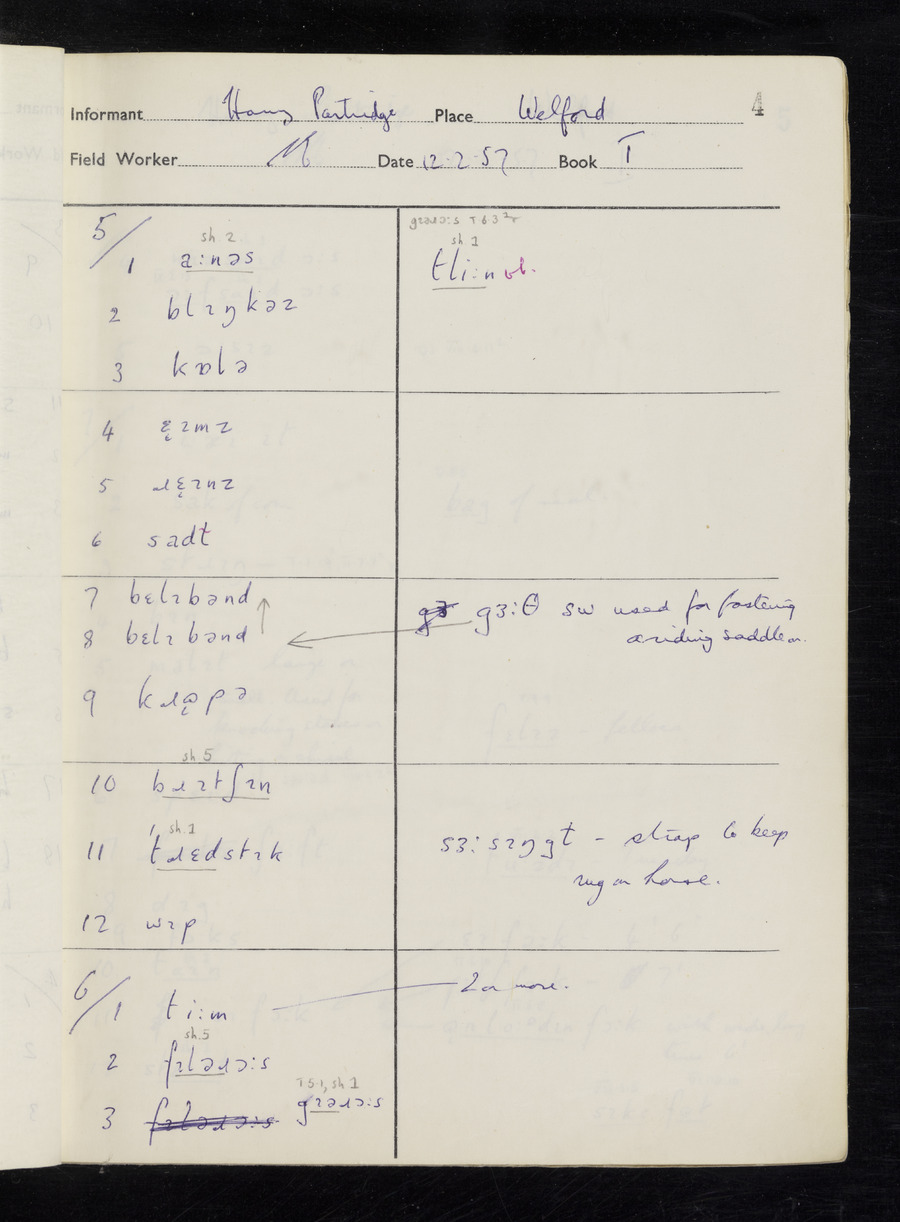 4
Informant Harry Partridge Place Welford
Field Worker Date 12.2.57 Book I
5/
sh. 2
1 a:nəs
2 blɪŋkəz
3 kɒlə
4 ɛ̨ɪmz
5 ɹɛ̨ɪnz
6 sadt
7 bɛlɪbənd
8 bɛlɪbənd
9 kɹəpə
sh 5
10 bɹɪtʃɪn
sh. 1
11 tɹɛdstɪk
12 wɪp
6/
1 ti:m
sh. 5
2 fɪləɹɔ:s
T51, sh 1
3 gɪəɹɔ:s
sh 1
tli:n vb.
gɜ:θ sw used for fastening
a riding saddle on.
sɜ:sɪŋgt - strap to keep
rug on horse.
2 or more.